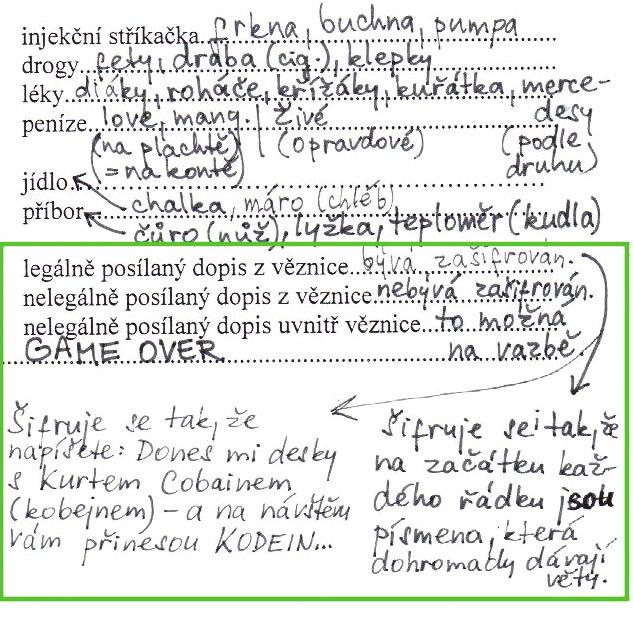 injekční stříkačka frkna, buchna, pumpa
drogy fety, drába (cig.), klepky
léky diáky, roháče, křížáky, kuřátka, merce-
peníze love, many | živé desy
(na plachtě) (opravdové) (podle
= na kontě druhu)
jídlo
příbor chalka, máro (chléb)
čůro (nůž), lyžka, teploměr (kudla)
legálně posílaný dopis z věznice bývá zašifrován.
nelegálně posílaný dopis z věznice nebývá zašifrován.
nelegálně posílaný dopis uvnitř věznice to možná
GAME OVER na vazbě
Šifruje se tak, že
napíšete: Dones mi desky
s Kurtem Cobainem
(kobejnem) – a na návštěvu
vám přinesou KODEIN...
Šifruje se i tak, že
na začátku kaž-
dého řádku jsou
písmena, která
dohromady dávají
věty.